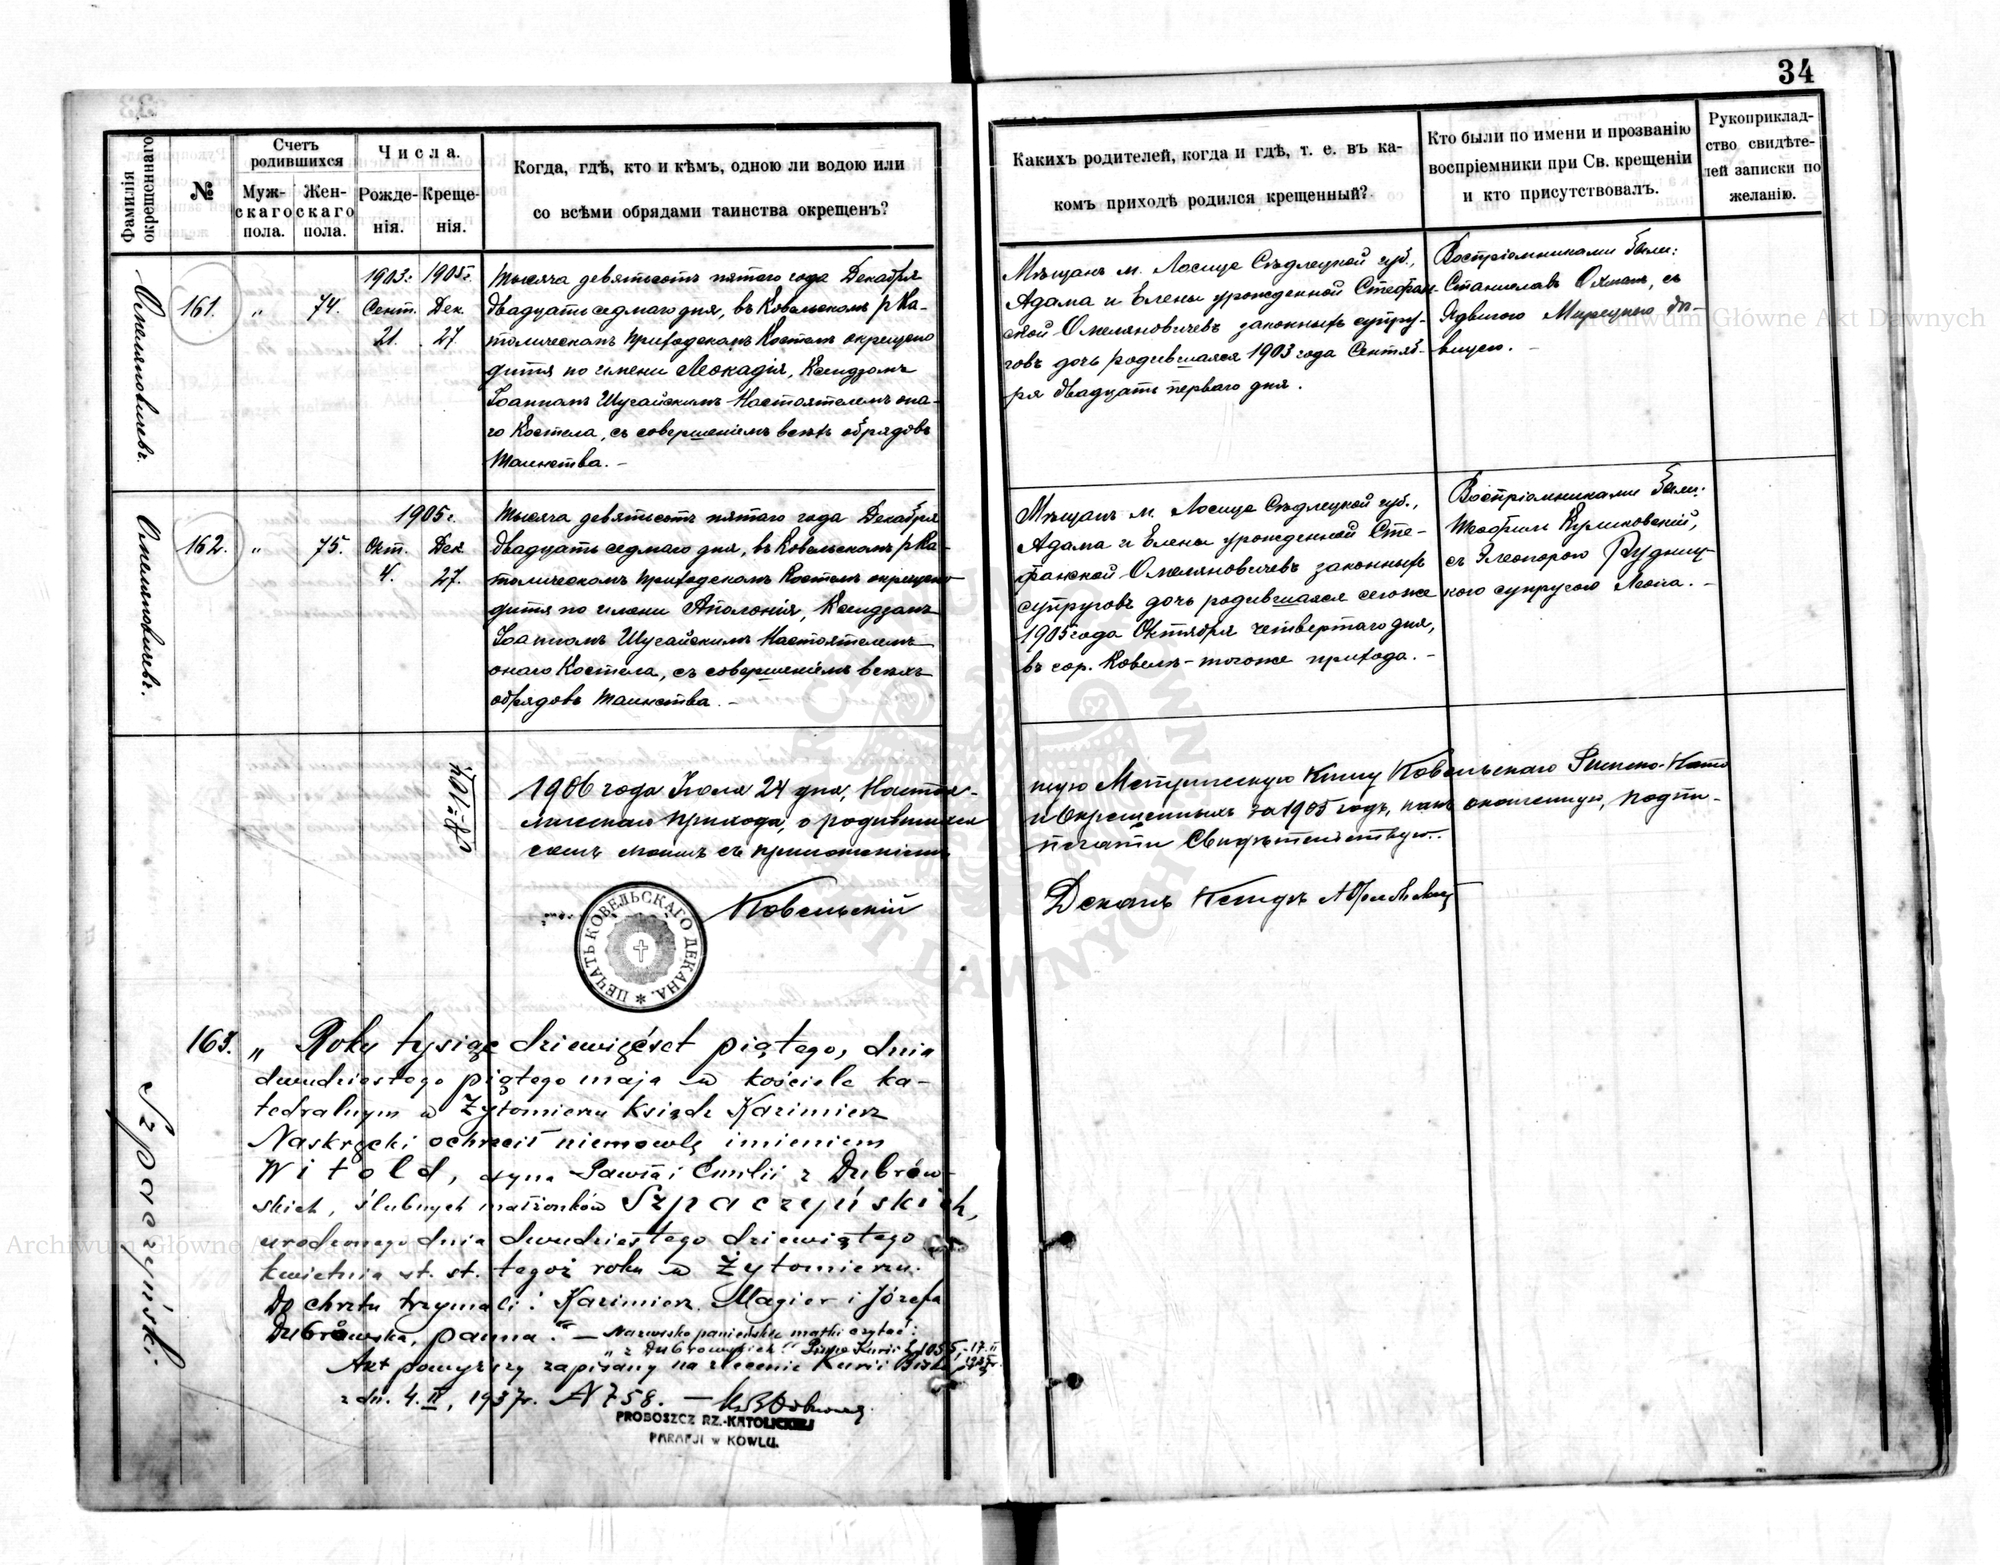 34
Фамилія окрещеннаго.
№
Счетъ родившихся
Мужскаго пола.
Женскаго пола.
Числа.
Рожденія.
Крещенія.
Когда, гдѣ, кто и кѣмъ, одною ли водою или
со всѣми обрядами таинства окрещенъ?
Какихъ родителей, когда и гдѣ, т. е. въ ка-
комъ приходѣ родился крещенный?
Кто были по имени и прозванію
воспріемники при Св. крещеніи
и кто присутствовалъ.
Рукоприклад-
ство свидѣте-
лей записки по
желанію.
Омеляновичевъ.
161.
"
74.
1903г.
Сент.
21.
1905г.
Дек.
27.
Тысяча девятьсотъ пятаго года Декабря
двадцать седмаго дня, въ Ковельскомъ р. Ка-
толическомъ приходскомъ Костелѣ окрещено
дитя по имени Леокадія, Ксендзомъ
Іоанномъ Шусайскимъ Настоятелемъ она-
го Костела, съ совершеніемъ всѣхъ обрядовъ
Таинства. –
Мѣщанъ м. Лосице Сѣдлецкой губ.,
Адама и Елены урожденной Стефан-
ской Омеляновичевъ законныхъ супру-
говъ дочь родившаяся 1903 года Сентяб-
ря двадцать перваго дня.
Воспріемниками были:
Станиславъ съ
Ядвигою дѣ-
вицею. –
Омеляновичевъ.
162.
"
75.
1905г.
Окт.
4.
Дек.
27.
Тысяча девятьсотъ пятаго года Декабря
двадцать седмаго дня, въ Ковельскомъ р. Ка-
толическомъ приходскомъ Костелѣ окрещено
дитя по имени Аполонія, Ксендзомъ
Іоанномъ Шусайскимъ Настоятелемъ
онаго Костела, съ совершеніемъ всѣхъ
обрядовъ Таинства. –
Мѣщанъ м. Лосице Сѣдлецкой губ.,
Адама и Елены урожденной Сте-
фанской Омеляновичевъ законныхъ
супруговъ дочь родившаяся сегоже
1905 года Октября четвертаго дня,
въ гор. Ковелѣ – тогоже прихода. –
Воспріемниками были:
Теофилъ Куликовскій,
съ Элеонорою Рудниц-
кого супругою Леона. –
1906 года Іюля 24 дня, Настоя-
щую Метрическую Книгу Ковельскаго Римско-Като
лическаго прихода, о родившихся
и Окрещенныхъ за 1905 годъ, какъ оконченную, подпи-
сомъ моимъ съ приложеніемъ
печати Свидѣтельствую.
Ковельскій
Деканъ Ксендзъ
ПЕЧАТЬ КОВЕЛЬСКАГО ДЕКАНА.
Szpaczyński.
163. „ Roku tysiąc dziewięćset piątego, dnia
dwudziestego piątego maja w kościele ka-
tedralnym w Żytomierzu ksiądz Kazimierz
Naskręcki ochrzcił niemowlę imieniem
Witold, syna Pawła i Emilii z Dubrów-
skich, ślubnych małżonków Szpaczyńskich,
urodzonego dnia dwudziestego dziewiątego
kwietnia st. st. tegoż roku w Żytomierzu.
Do chrztu trzymali: Kazimierz Magier i Józefa
Dubrowska, panna." – Nazwisko panieńskie matki czytać:
„z Dubrowskich" Pismo Kurii
Akt powyższy zapisany na zlecenie Kurii
z dn. 4.II, 1937r. N 758. –
PROBOSZCZ RZ.-KATOLICKIEJ
PARAFJI w KOWLU.
Archiwum Główne Akt Dawnych
Archiwum Główne Akt Dawnych